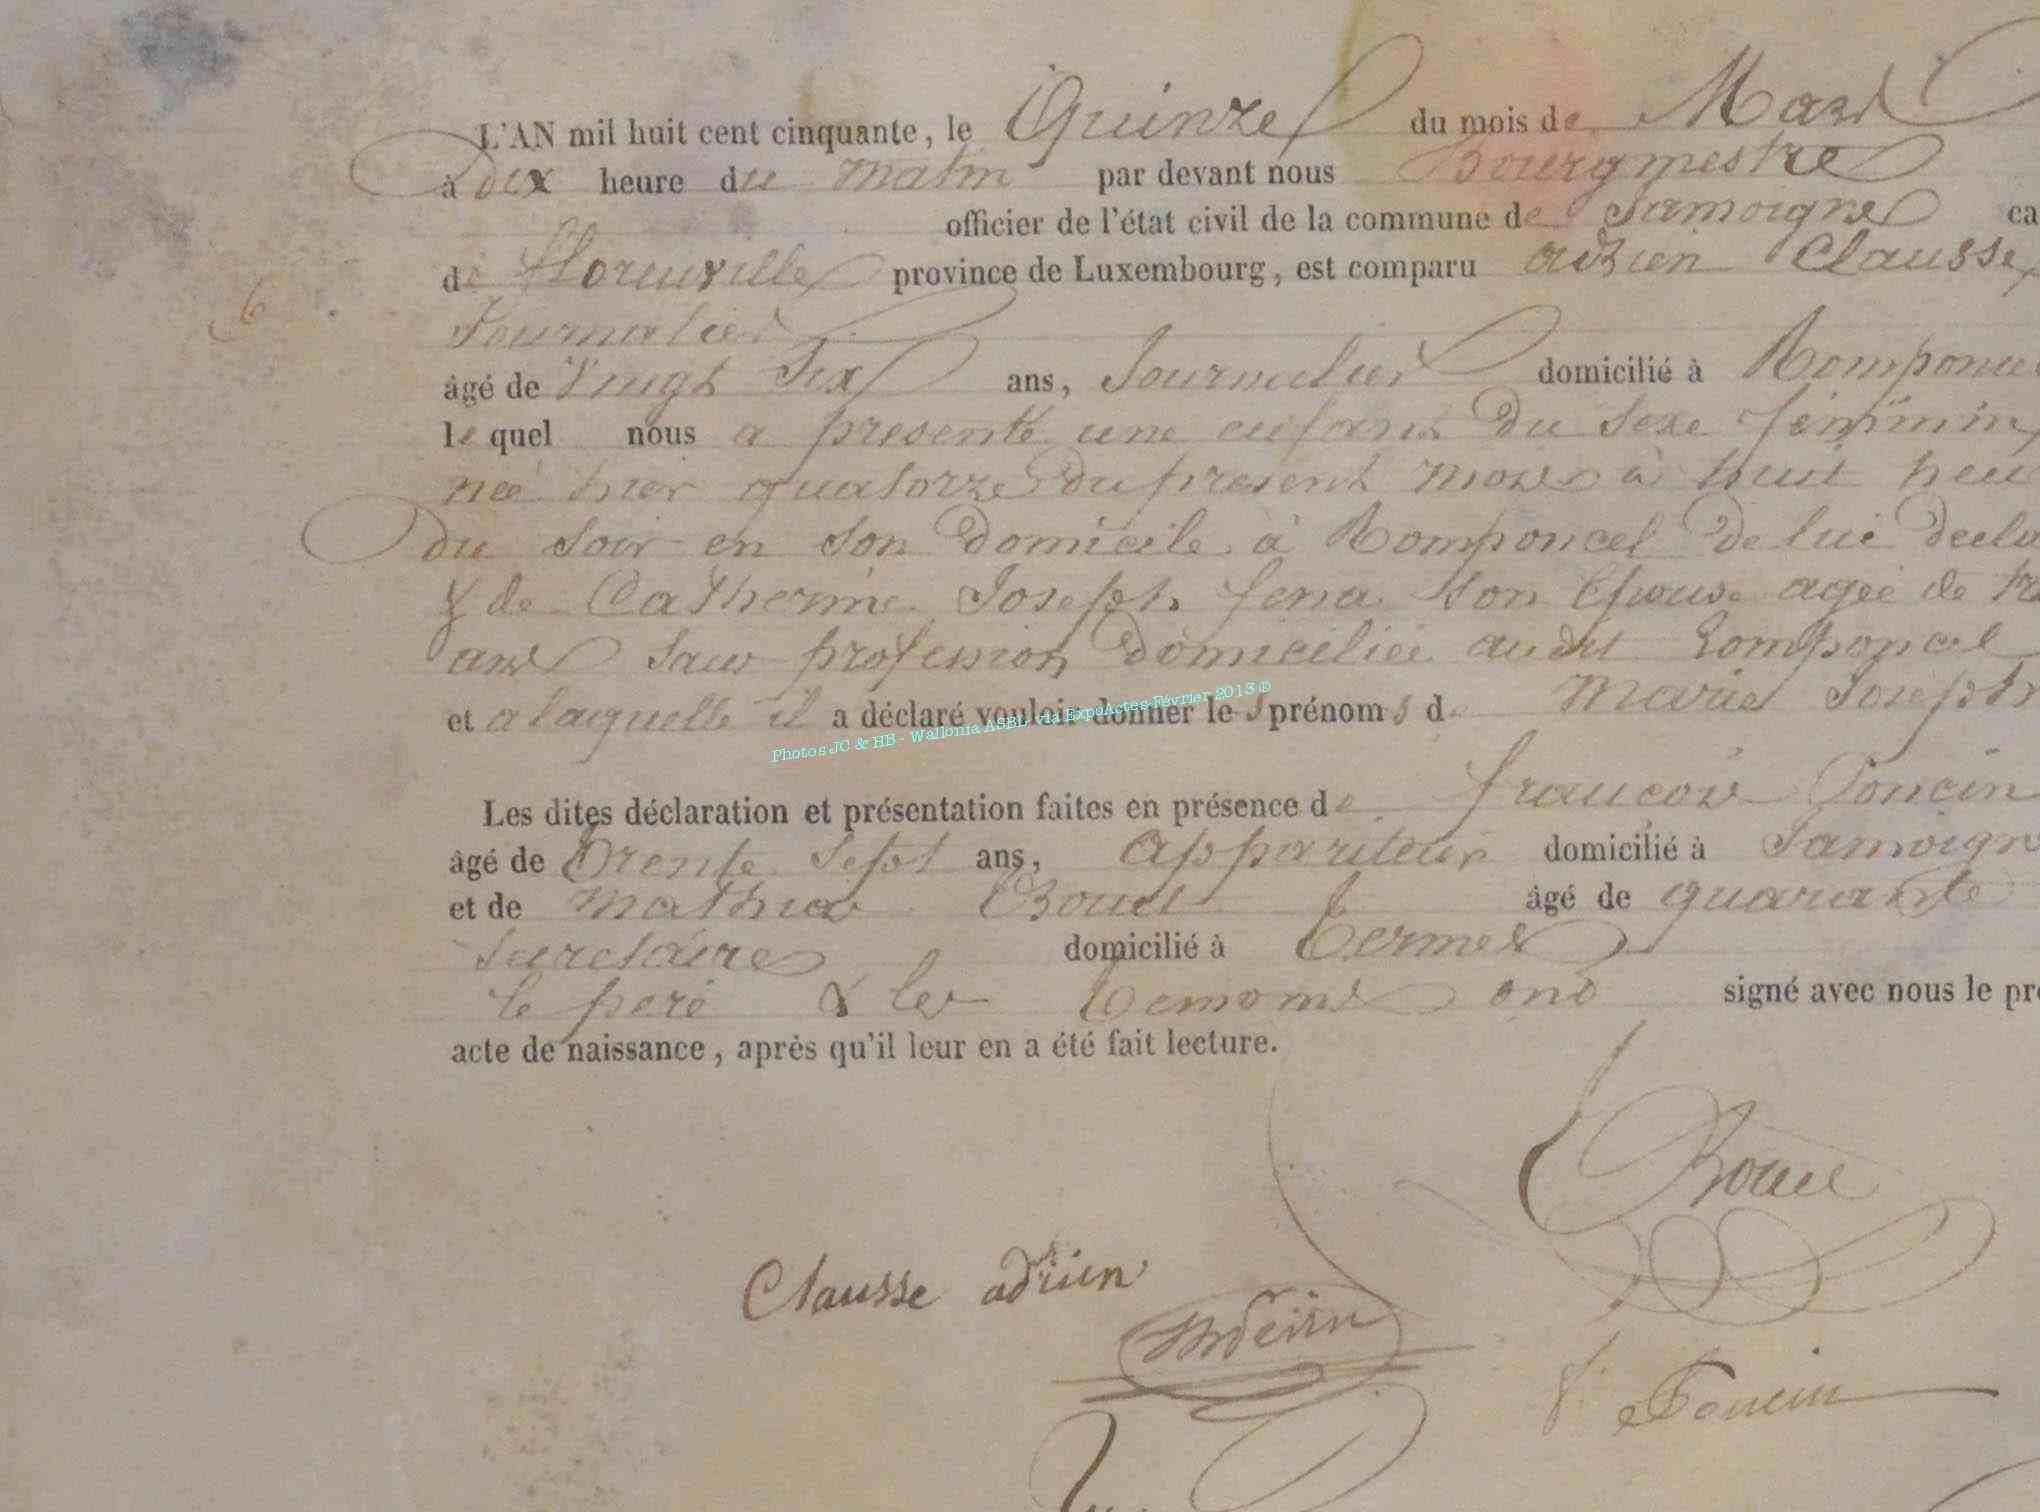 L'AN mil huit cent cinquante, le Quinze du mois de Mars
à dix heure du matin par devant nous Bourgmestre
officier de l'état civil de la commune de Jamoigne ca
de Florenville province de Luxembourg, est comparu adrien Clausse
Journalier
âgé de Vingt Six ans, Journalier domicilié à Romponcel
6
le quel nous a presenté une enfant du Sexe féminin
née hier quatorze du present mois à huit heu
du soir en son domicile à Romponcel de lui decla
& de Catherine Joseph son Epouse agée de
ans sans profession domiciliée audit romponcel
et a laquelle il a déclaré vouloir donner les prénoms de Marie Joseph
Photos JC & HB - Wallonia ASBL via ExpoActes Février 2013 ®
Les dites déclaration et présentation faites en présence de françois Poncin
âgé de trente Sept ans, appariteur domicilié à Jamoigne
et de Mathieu Bouel âgé de quarante
Secretaire domicilié à termes
le pere & les temoins ond signé avec nous le pré
acte de naissance, après qu'il leur en a été fait lecture.
Bouel
Clausse adrien
f. Poncin